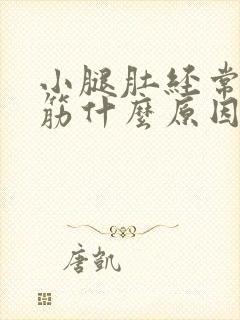 小腿肚経常
筋什麼原因
唐凱